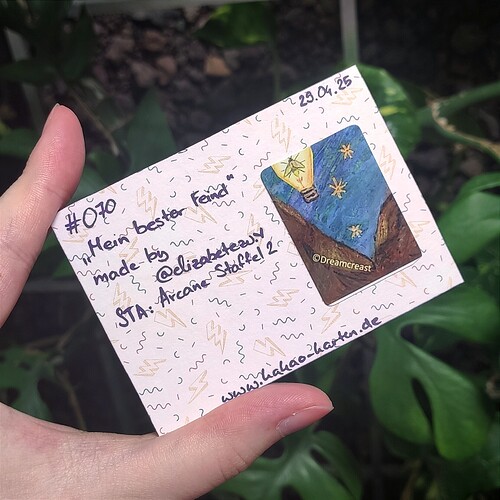 29.04.25
#070
„Mein bester Feind"
made by
@elizabetew.v
STA: Arcane Staffel 2
©Dreamcreast
www.kakao-karten.de